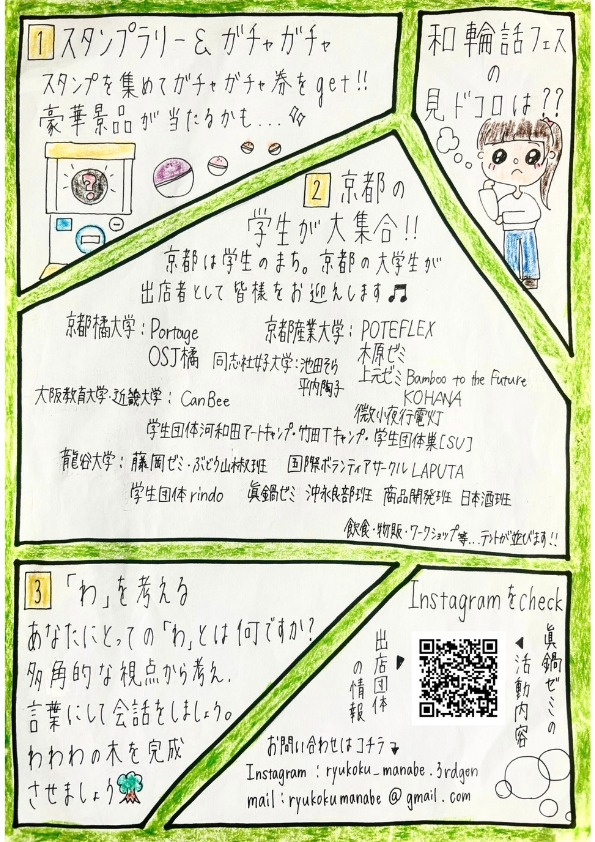 1 スタンプラリー & ガチャガチャ
スタンプを集めてガチャガチャ券をget!!
豪華景品が当たるかも...
和輪話フェス
の
見ドコロは??
?
2 京都の
学生が大集合!!
京都は学生のまち。京都の大学生が
出店者として皆様をお迎えします♫
京都橘大学:Portage
OSJ橘
同志社女子大学:池田そら
平内陶子
京都産業大学:POTEFLEX
木原ゼミ
上元ゼミ Bamboo to the Future
KOHANA
微小夜行電灯
大阪教育大学・近畿大学:CanBee
学生団体河和田アートキャンプ・竹田Tキャンプ・学生団体巣[SU]
龍谷大学:藤岡ゼミ・ぶどう山椒班 国際ボランティアサークルLAPUTA
学生団体rindo 眞鍋ゼミ 沖永良部班 商品開発班 日本酒班
飲食・物販・ワークショップ等...テントが並びます!!
3 「わ」を考える
あなたにとっての「わ」とは何ですか?
多角的な視点から考え、
言葉にして会話をしましょう。
わわわの木を完成
させましょう
Instagramをcheck
眞鍋ゼミの
活動内容
出店団体
の情報
お問い合わせはコチラ
Instagram:ryukoku_manabe.3rdgen
mail:ryukokumanabe@gmail.com